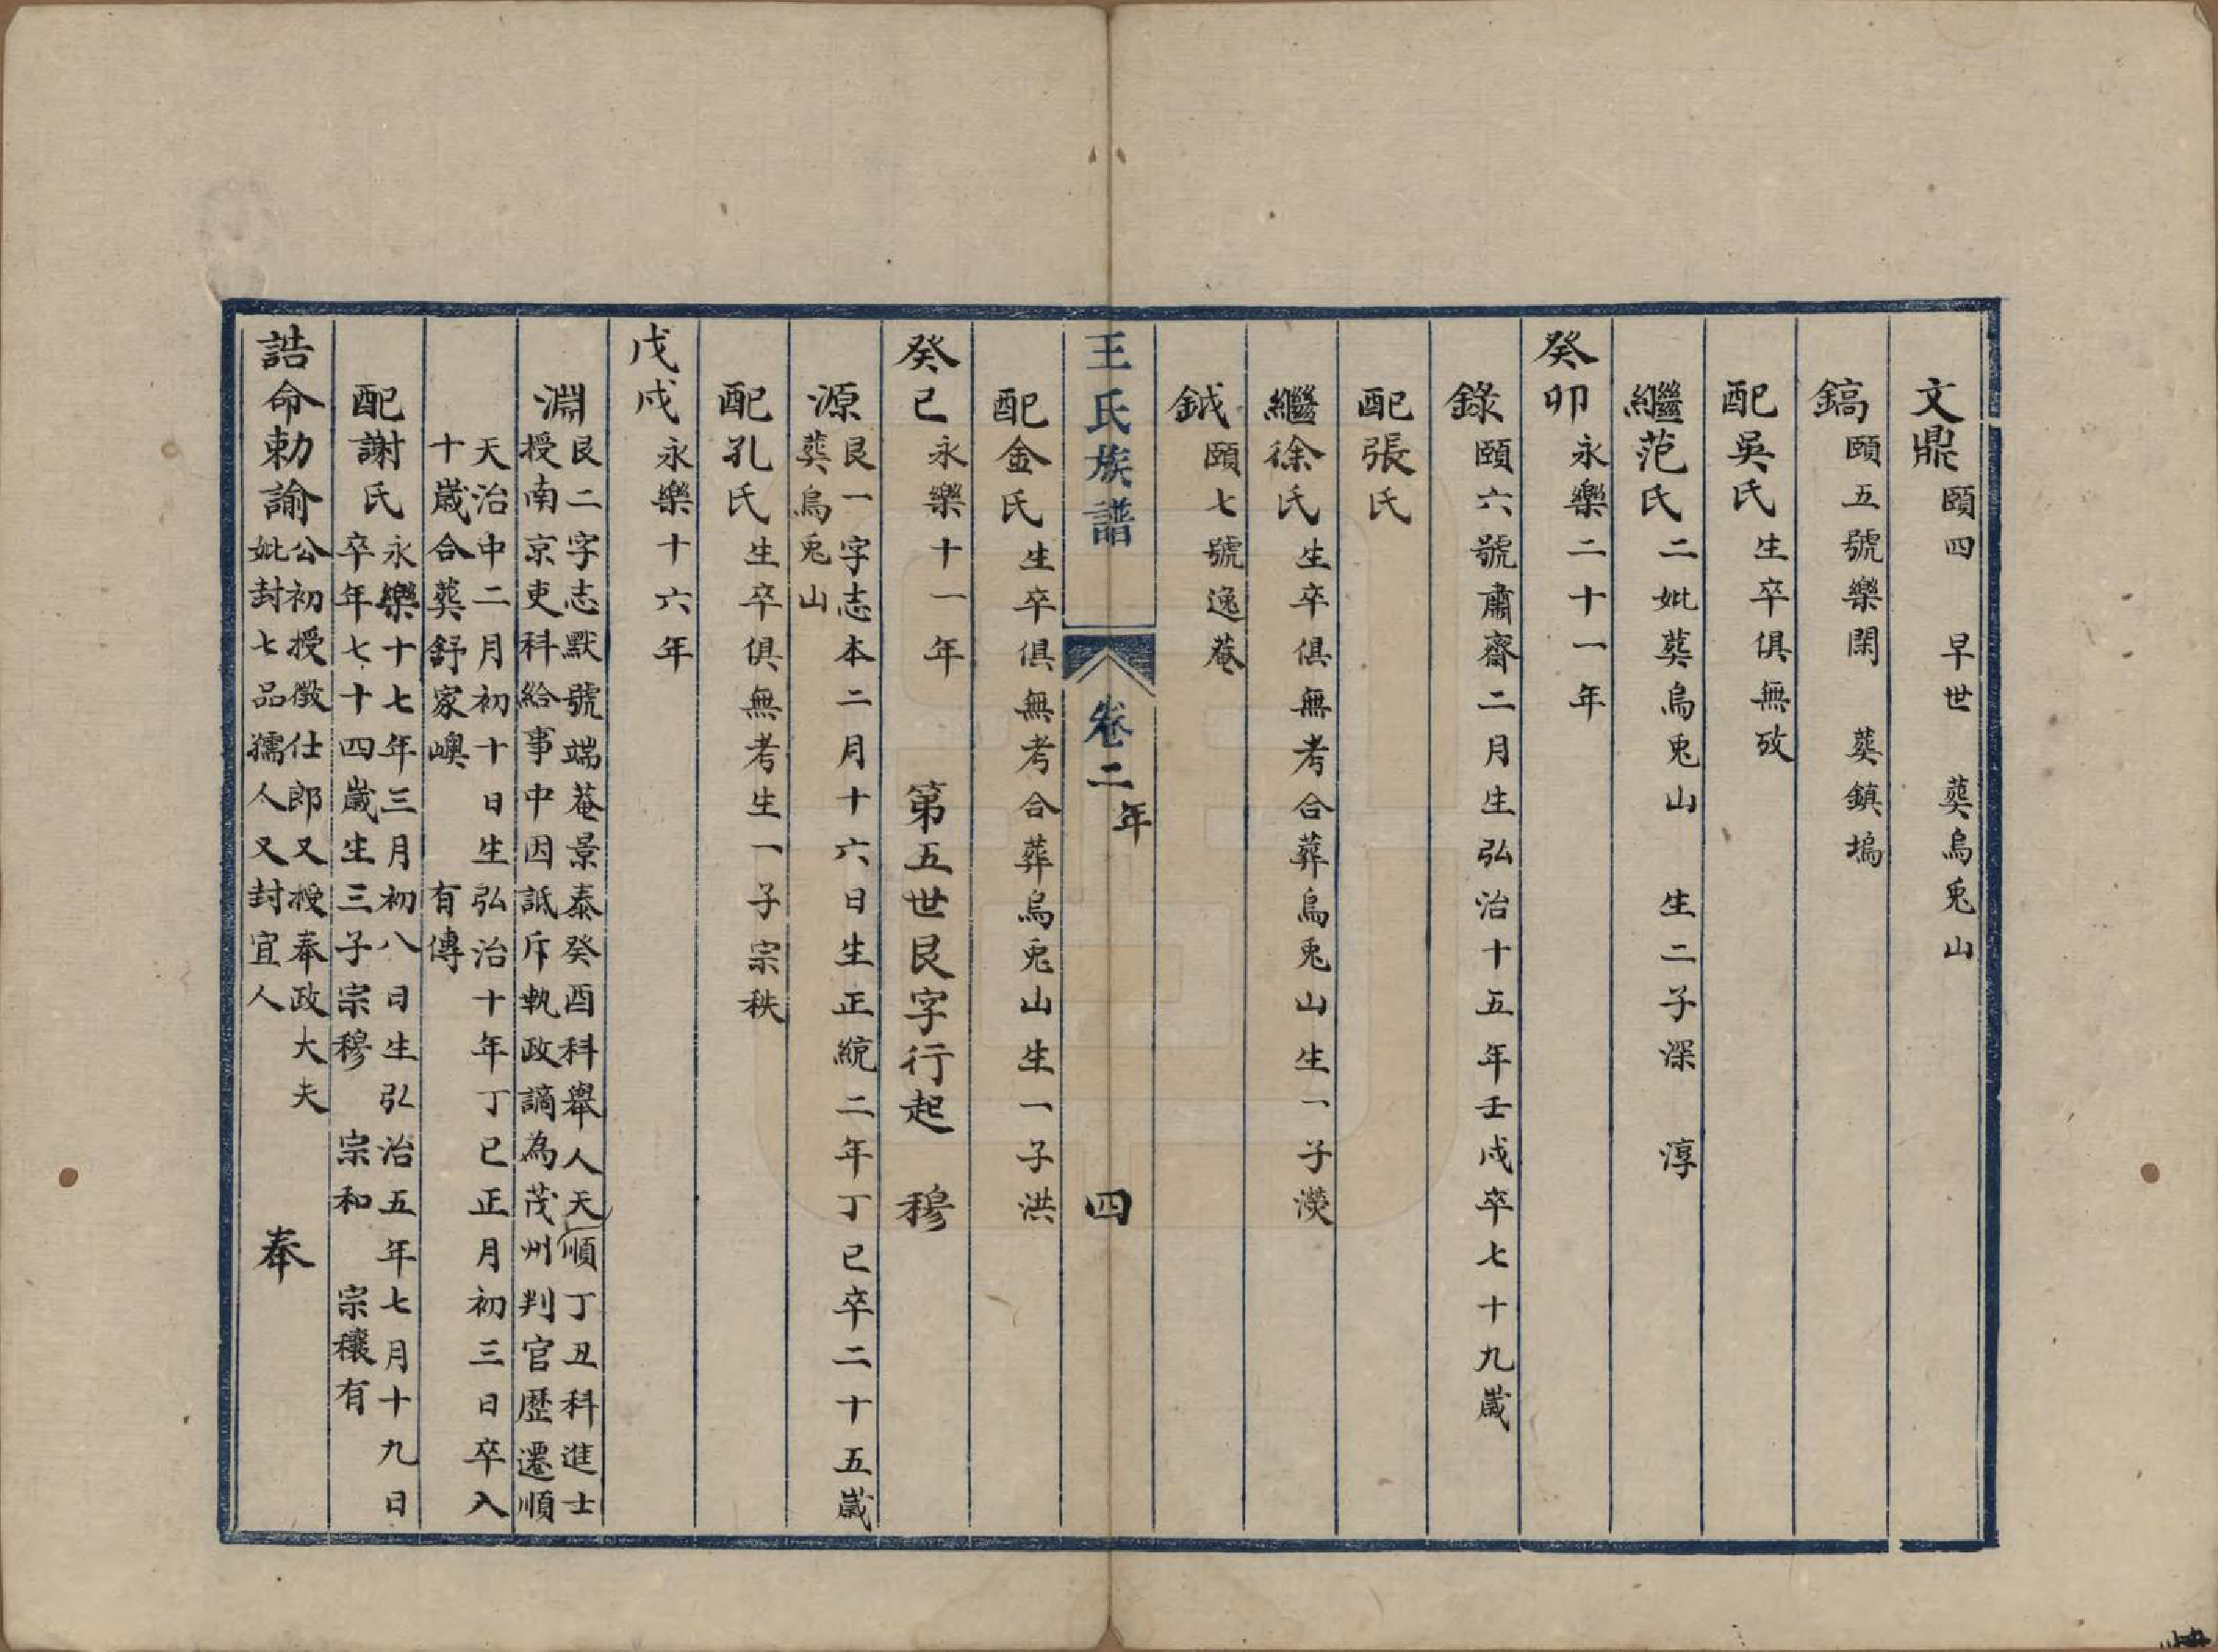 文鼎 頤四 早世 葬烏兎山
鎬 頤五號樂閑 葬鎮塢
配吳氏 生卒俱無攷
繼范氏 二妣葬烏兎山 生二子深 淳
癸卯 永樂二十一年
錄 頤六號肅齋二月生弘治十五年壬戌卒七十九歲
配張氏
繼徐氏 生卒俱無考合葬烏兎山生一子濙
鉞 頤七號逸菴
王氏族譜 卷二 年 四
配金氏 生卒俱無考合葬烏兎山生一子洪
癸巳 永樂十一年 第五世艮字行起 穆
源 艮一字志本二月十六日生正統二年丁巳卒二十五歲
葬烏兎山
配孔氏 生卒俱無考生一子宗秩
戊戌 永樂十六年
淵 艮二字志默號端菴景泰癸酉科舉人天順丁丑科進士
授南京吏科給事中因詆斥執政謫為茂州判官歷遷順
天治中二月初十日生弘治十年丁巳正月初三日卒入
十歲合葬舒家嶼 有傳
配謝氏 永樂十七年三月初八日生弘治五年七月十九日
卒年七十四歲生三子宗穆 宗和 宗穰有
誥命勅諭 公初授徵仕郎又授奉政大夫
妣封七品孺人又封宜人 奉